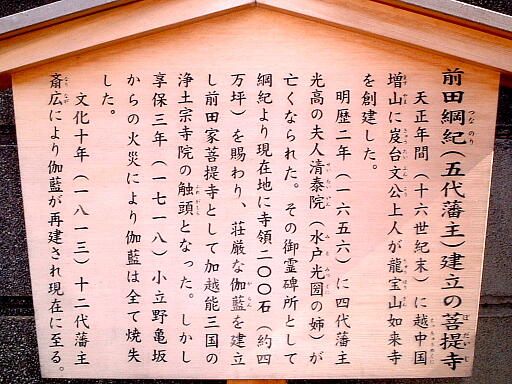 前田綱紀（五代藩主）建立の菩提寺
天正年間（十六世紀末）に越中国
増山に岌台文公上人が龍宝山如来寺
を創建した。
明暦二年（一六五六）に四代藩主
光高の夫人清泰院（水戸光圀の姉）が
亡くなられた。その御霊碑所として
綱紀より現在地に寺領二〇〇石（約四
万坪）を賜わり、荘厳な伽藍を建立
し前田家菩提寺として加越能三国の
浄土宗寺院の触頭となった。しかし
享保三年（一七一八）小立野亀坂
からの火災により伽藍は全て焼失
した。
文化十年（一八一三）十二代藩主
斎広により伽藍が再建され現在に至る。